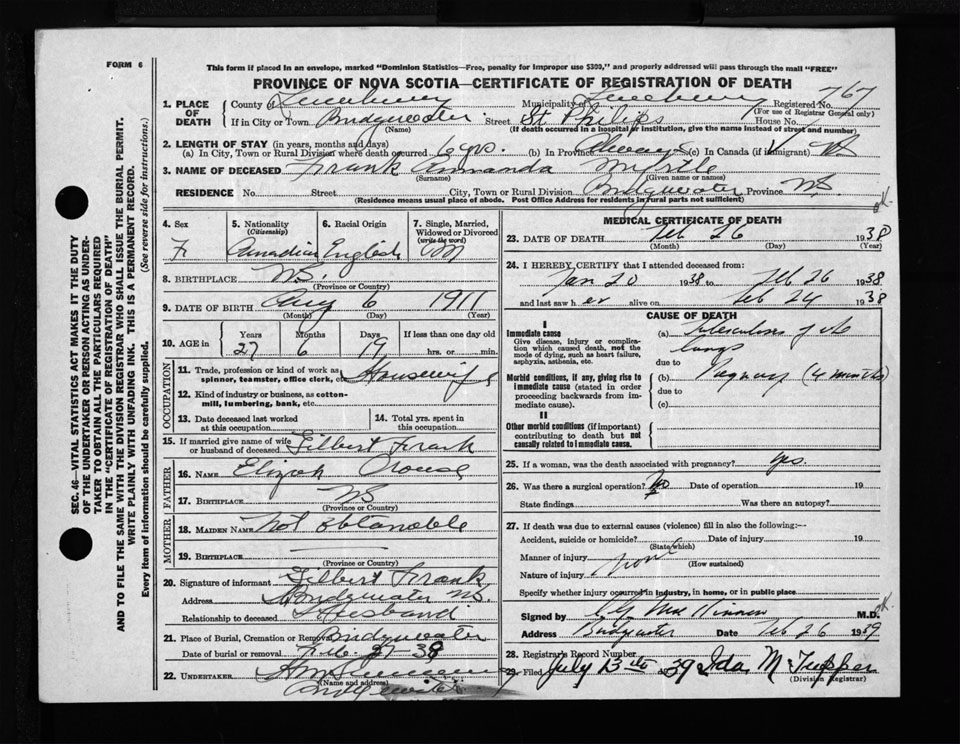 FORM 6
This form if placed in an envelope, marked "Dominion Statistics—Free, penalty for improper use $300," and properly addressed will pass through the mail "FREE"
PROVINCE OF NOVA SCOTIA—CERTIFICATE OF REGISTRATION OF DEATH
1. PLACE OF DEATH
County of Lunenburg Municipality of Lunenburg Registered No. 767
(For use of Registrar General only)
If in City or Town Bridgewater Street St Philips House No.
(Name) (If death occurred in a hospital or institution, give the name instead of street and number)
2. LENGTH OF STAY (in years, months and days)
(a) In City, Town or Rural Division where death occurred 6 yrs. (b) In Province Always (c) In Canada (if immigrant)
3. NAME OF DECEASED Frank Amanda Myrtle
(Surname) (Given name or names)
RESIDENCE No. Street City, Town or Rural Division Bridgewater Province NS
(Residence means usual place of abode. Post Office Address for residents in rural parts not sufficient)
4. Sex
F
5. Nationality
(Citizenship)
Canadian
6. Racial Origin
English
7. Single, Married, Widowed or Divorced
(write the word)
M
8. BIRTHPLACE NS.
(Province or Country)
9. DATE OF BIRTH Aug 6 1911
(Month) (Day) (Year)
10. AGE in Years Months Days If less than one day old
27 6 19 hrs. or min.
OCCUPATION
11. Trade, profession or kind of work as spinner, teamster, office clerk, etc. Housewife
12. Kind of industry or business, as cotton-mill, lumbering, bank, etc.
13. Date deceased last worked at this occupation
14. Total yrs. spent in this occupation
15. If married give name of wife or husband of deceased Gilbert Frank
FATHER
16. NAME Elijah
17. BIRTHPLACE NS
(Province or Country)
MOTHER
18. MAIDEN NAME Not obtanable
19. BIRTHPLACE
(Province or Country)
20. Signature of informant Gilbert Frank
Address Bridgewater NS.
Relationship to deceased Husband
21. Place of Burial, Cremation or Removal Bridgewater
Date of burial or removal Feb. 27 38
22. UNDERTAKER
(Name and address)
Bridgewater
MEDICAL CERTIFICATE OF DEATH
23. DATE OF DEATH Feb 26 1938
(Month) (Day) (Year)
24. I HEREBY CERTIFY that I attended deceased from:
Jan 20 1938 to Feb 26 1938
and last saw her alive on Feb 24 1938
CAUSE OF DEATH
I
Immediate cause
Give disease, injury or complication which caused death, not the mode of dying, such as heart failure, asphyxia, asthenia, etc.
(a) Tuberculosis of the lungs
due to
Morbid conditions, if any, giving rise to immediate cause (stated in order proceeding backwards from immediate cause).
(b) Pregnancy (4 months)
due to
(c)
II
Other morbid conditions (if important) contributing to death but not causally related to immediate cause.
25. If a woman, was the death associated with pregnancy? yes.
26. Was there a surgical operation? No Date of operation 19
State findings Was there an autopsy?
27. If death was due to external causes (violence) fill in also the following:—
Accident, suicide or homicide? Date of injury 19
(State which)
Manner of injury none
(How sustained)
Nature of injury
Specify whether injury occurred in industry, in home, or in public place
Signed by M.D.
Address Bridgewater Date Feb 26 1939
28. Registrar's Record Number
29. Filed July 13th 39 Ida M Tupper
(Division Registrar)
SEC. 46—VITAL STATISTICS ACT MAKES IT THE DUTY
OF THE UNDERTAKER OR PERSON ACTING AS UNDERTAKER TO OBTAIN ALL THE PARTICULARS REQUIRED
IN THE "CERTIFICATE OF REGISTRATION OF DEATH"
AND TO FILE THE SAME WITH THE DIVISION REGISTRAR WHO SHALL ISSUE THE BURIAL PERMIT.
WRITE PLAINLY WITH UNFADING INK. THIS IS A PERMANENT RECORD.
Every item of information should be carefully supplied. (See reverse side for instructions.)